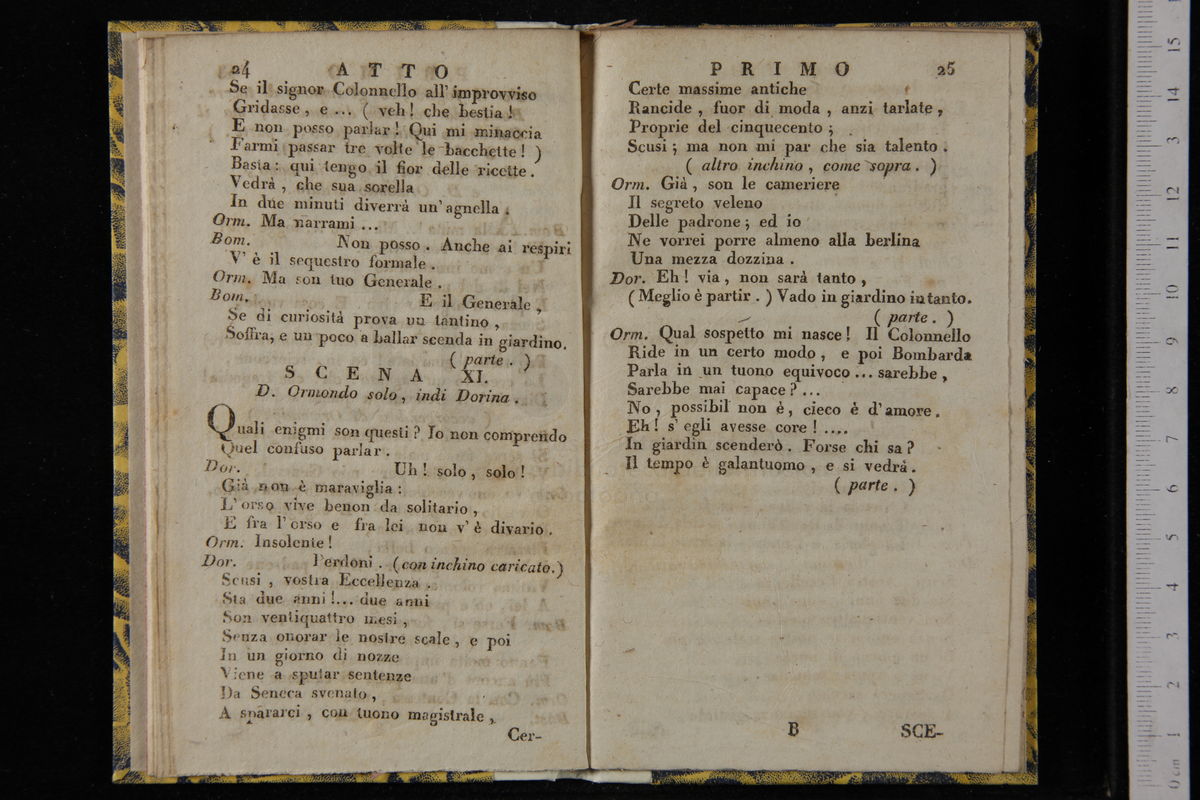 24 ATTO
Se il signor Colonnello all' improvviso
Gridasse, e ... ( veh! che bestia!
E non posso parlar! Qui mi minaccia
Farmi passar tre volte le bacchette! )
Basta: qui tengo il fior delle ricette.
Vedrà, che sua sorella
In due minuti diverrà un' agnella.
Orm. Ma narrami ...
Bom. Non posso. Anche ai respiri
V' è il sequestro formale.
Orm. Ma son tuo Generale.
Bom. E il Generale,
Se di curiosità prova un tantino,
Soffra, e un poco a ballar scenda in giardino.
( parte. )
SCENA XI.
D. Ormondo solo, indi Dorina.
Quali enigmi son questi? Io non comprendo
Quel confuso parlar.
Dor. Uh! solo, solo!
Già non è maraviglia:
L' orso vive benon da solitario,
E fra l' orso e fra lei non v' è divario.
Orm. Insolente!
Dor. Perdoni. (con inchino caricato.)
Scusi, vostra Eccellenza.
Sta due anni!... due anni
Son ventiquattro mesi,
Senza onorar le nostre scale, e poi
In un giorno di nozze
Viene a sputar sentenze
Da Seneca svenato,
A spararci, con tuono magistrale,
Cer-
PRIMO 25
Certe massime antiche
Rancide, fuor di moda, anzi tarlate,
Proprie del cinquecento;
Scusi; ma non mi par che sia talento.
( altro inchino, come sopra. )
Orm. Già, son le cameriere
Il segreto veleno
Delle padrone; ed io
Ne vorrei porre almeno alla berlina
Una mezza dozzina.
Dor. Eh! via, non sarà tanto,
( Meglio è partir. ) Vado in giardino intanto.
( parte. )
Orm. Qual sospetto mi nasce! Il Colonnello
Ride in un certo modo, e poi Bombarda
Parla in un tuono equivoco ... sarebbe,
Sarebbe mai capace? ...
No, possibil non è, cieco è d' amore.
Eh! s' egli avesse core! ....
In giardin scenderò. Forse chi sa?
Il tempo è galantuomo, e si vedrà.
( parte. )
B SCE-
0 cm 1 2 3 4 5 6 7 8 9 10 11 12 13 14 15